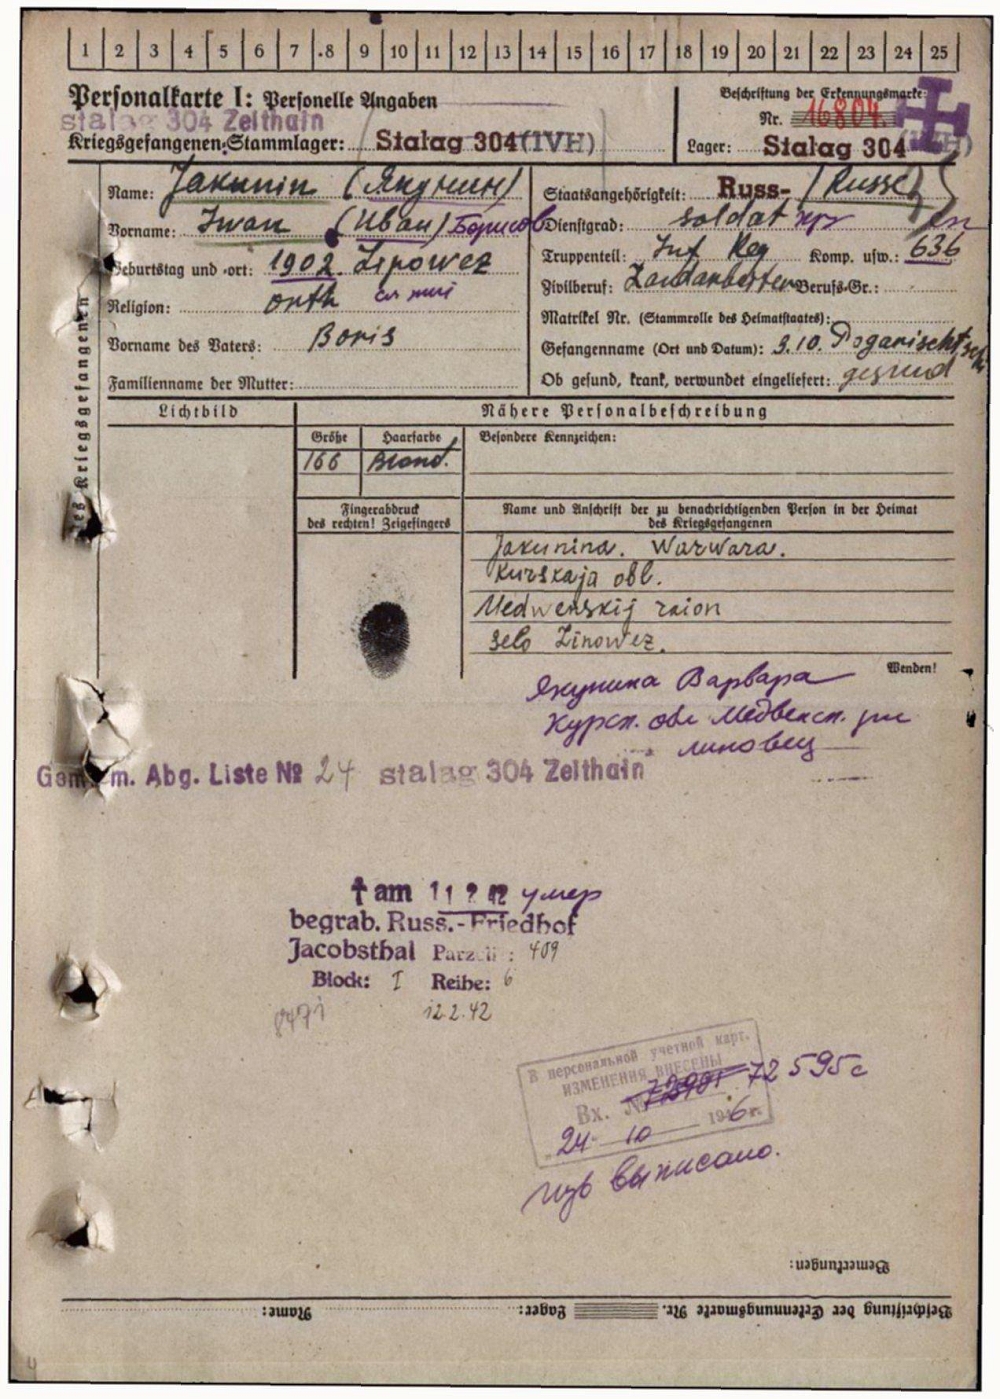 1 2 3 4 5 6 7 8 9 10 11 12 13 14 15 16 17 18 19 20 21 22 23 24 25
Personalkarte I: Personelle Angaben
stalag 304 Zeithain
Kriegsgefangenen-Stammlager: Stalag 304 (IVH)
Beschriftung der Erkennungsmarke:
Nr. 16804
Lager: Stalag 304 (IVH)
des Kriegsgefangenen
Name: Jakunin (Якунин)
Vorname: Iwan (Иван) Борисов
Geburtstag und -ort: 1902. Lipowez
Religion: orth
Vorname des Vaters: Boris
Familienname der Mutter:
Staatsangehörigkeit: Russ- (Russe)
Dienstgrad: Soldat кр
Truppenteil: Inf Reg Komp. usw.: 636
Zivilberuf: Landarbeiter Berufs-Gr.:
Matrikel Nr. (Stammrolle des Heimatstaates):
Gefangenname (Ort und Datum): 3.10.
Ob gesund, krank, verwundet eingeliefert: gesund
Lichtbild
Nähere Personalbeschreibung
Größe Haarfarbe Besondere Kennzeichen:
166 Blond.
Fingerabdruck
des rechten! Zeigefingers
Name und Anschrift der zu benachrichtigenden Person in der Heimat
des Kriegsgefangenen
Jakunina. Warwara.
Kurskaja obl.
Medwenskij raion
selo Linowez.
Wenden!
Якунина Варвара
Курск. обл Медвенск. рн
линовец
Gem. m. Abg. Liste № 24 stalag 304 Zeithain
† am 11 2 42 умер
begrab. Russ.-Friedhof
Jacobsthal Parzelle: 409
Block: I Reihe: 6
12.2.42
В персональной учетной карт.
ИЗМЕНЕНИЯ ВНЕСЕНЫ
Вх. № 72595с
24 10 1946 г.
изв выписано.
Bemerkungen:
Beschriftung der Erkennungsmarke Nr. Lager: Name: